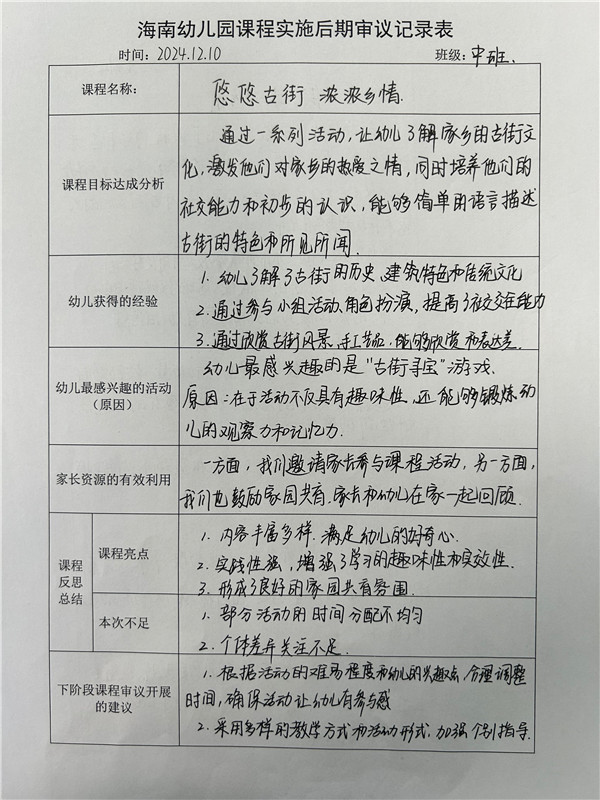 海南幼儿园课程实施后期审议记录表
时间：2024.12.10 班级：中班.
课程名称： 悠悠古街 浓浓乡情.
课程目标达成分析
通过一系列活动，让幼儿了解家乡的古街文
化，激发他们对家乡的热爱之情，同时培养他们的
社交能力和初步的认识，能够简单的语言描述
古街的特色和所见所闻.
幼儿获得的经验
1. 幼儿了解了古街的历史、建筑特色和传统文化
2. 通过参与小组活动、角色扮演，提高了社交交往能力
3. 通过欣赏古街风景、手工艺品，能够欣赏和表达差.
幼儿最感兴趣的活动
（原因）
幼儿最感兴趣的是“古街寻宝”游戏.
原因：在于活动不仅具有趣味性，还能够锻炼幼
儿的观察力和记忆力.
家长资源的有效利用
一方面，我们邀请家长参与课程活动，另一方面，
我们也鼓励家园共育.家长和幼儿在家一起回顾.
课程
反思
总结
课程亮点
1. 内容丰富多样.满足幼儿的好奇心.
2. 实践性强，增强了学习的趣味性和实效性.
3. 形成了良好的家园共育氛围.
本次不足
1. 部分活动的时间分配不均匀
2. 个体差异关注不足.
下阶段课程审议开展
的建议
1. 根据活动的难易程度和幼儿的兴趣点，合理调整
时间，确保活动让幼儿有参与感
2. 采用多样的教学方式和活动形式，加强个别指导.